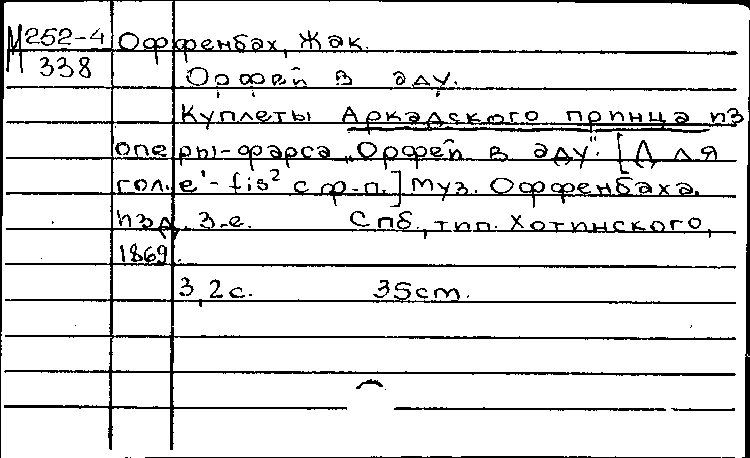 М 252-4 Оффенбах, Жак.
338
Орфей в аду.
Куплеты Аркадского принца из
оперы-фарса „Орфей в аду". [Для
гол. e'-fis² с ф-п.] Муз. Оффенбаха.
Изд. 3-е. Спб., тип. Хотинского,
1869.
3,2 с. 35 cm.